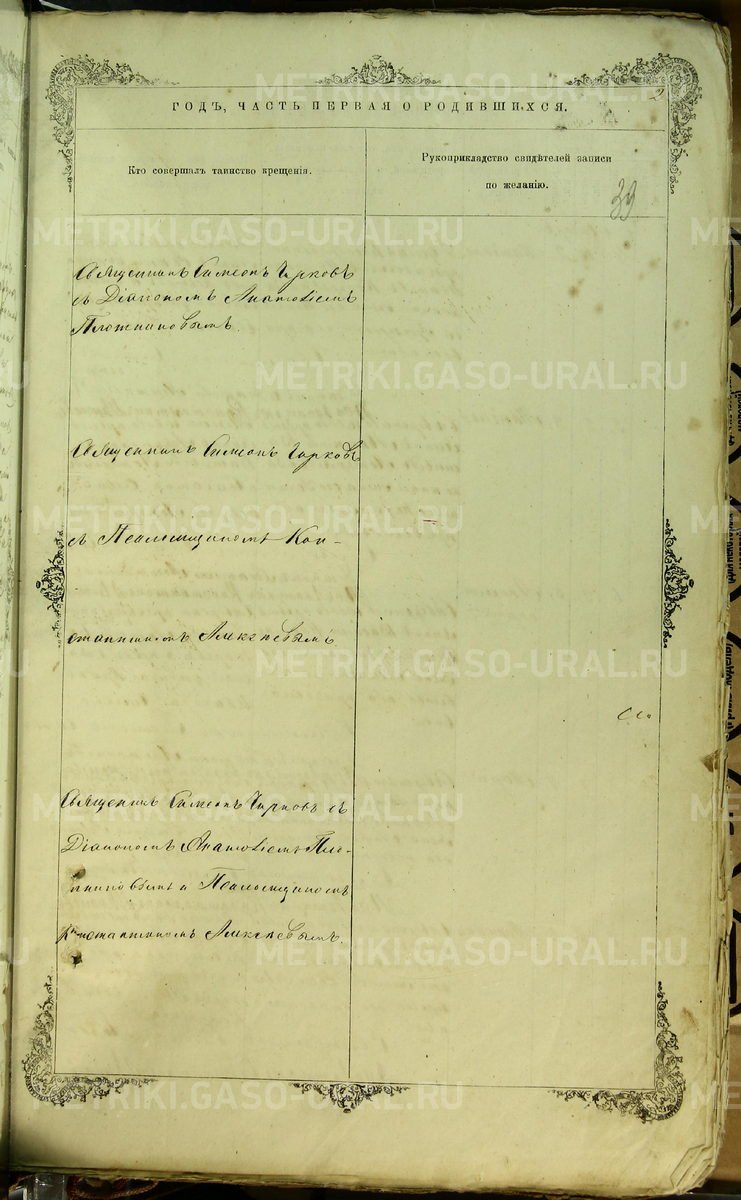 2
ГОДЪ, ЧАСТЬ ПЕРВАЯ О РОДИВШИХСЯ.
Кто совершалъ таинство крещенія.
Рукоприкладство свидѣтелей записи
по желанію.
39
Священникъ Симеонъ Чирковъ
съ Діакономъ Анатоліемъ
Плотниковымъ.
Священникъ Симеонъ Чирковъ
съ Псаломщикомъ Кон-
стантиномъ Алексѣевымъ
Священникъ Симеонъ Чирковъ съ
Діакономъ Анатоліемъ Пло-
тниковымъ и Псаломщикомъ
Константиномъ Алексѣевымъ.
METRIKI.GASO-URAL.RU